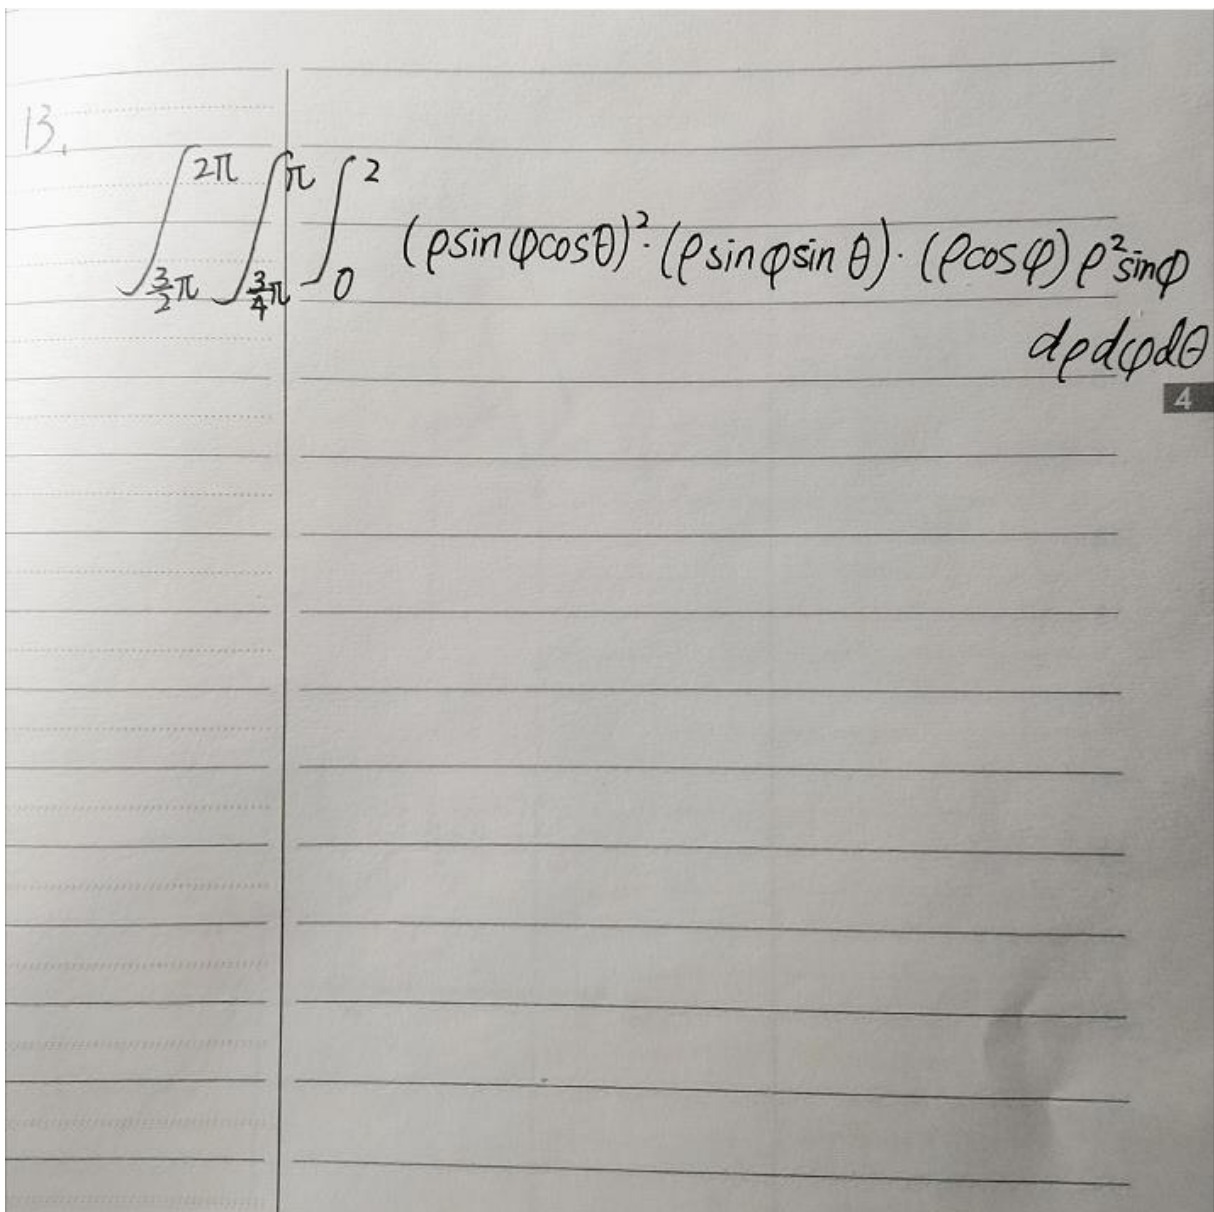 13.
∫_{3/2 π}^{2π} ∫_{3/4 π}^{π} ∫_0^2 (ρsinφcosθ)²·(ρsinφsinθ)·(ρcosφ)ρ²sinφ
dρdφdθ
4